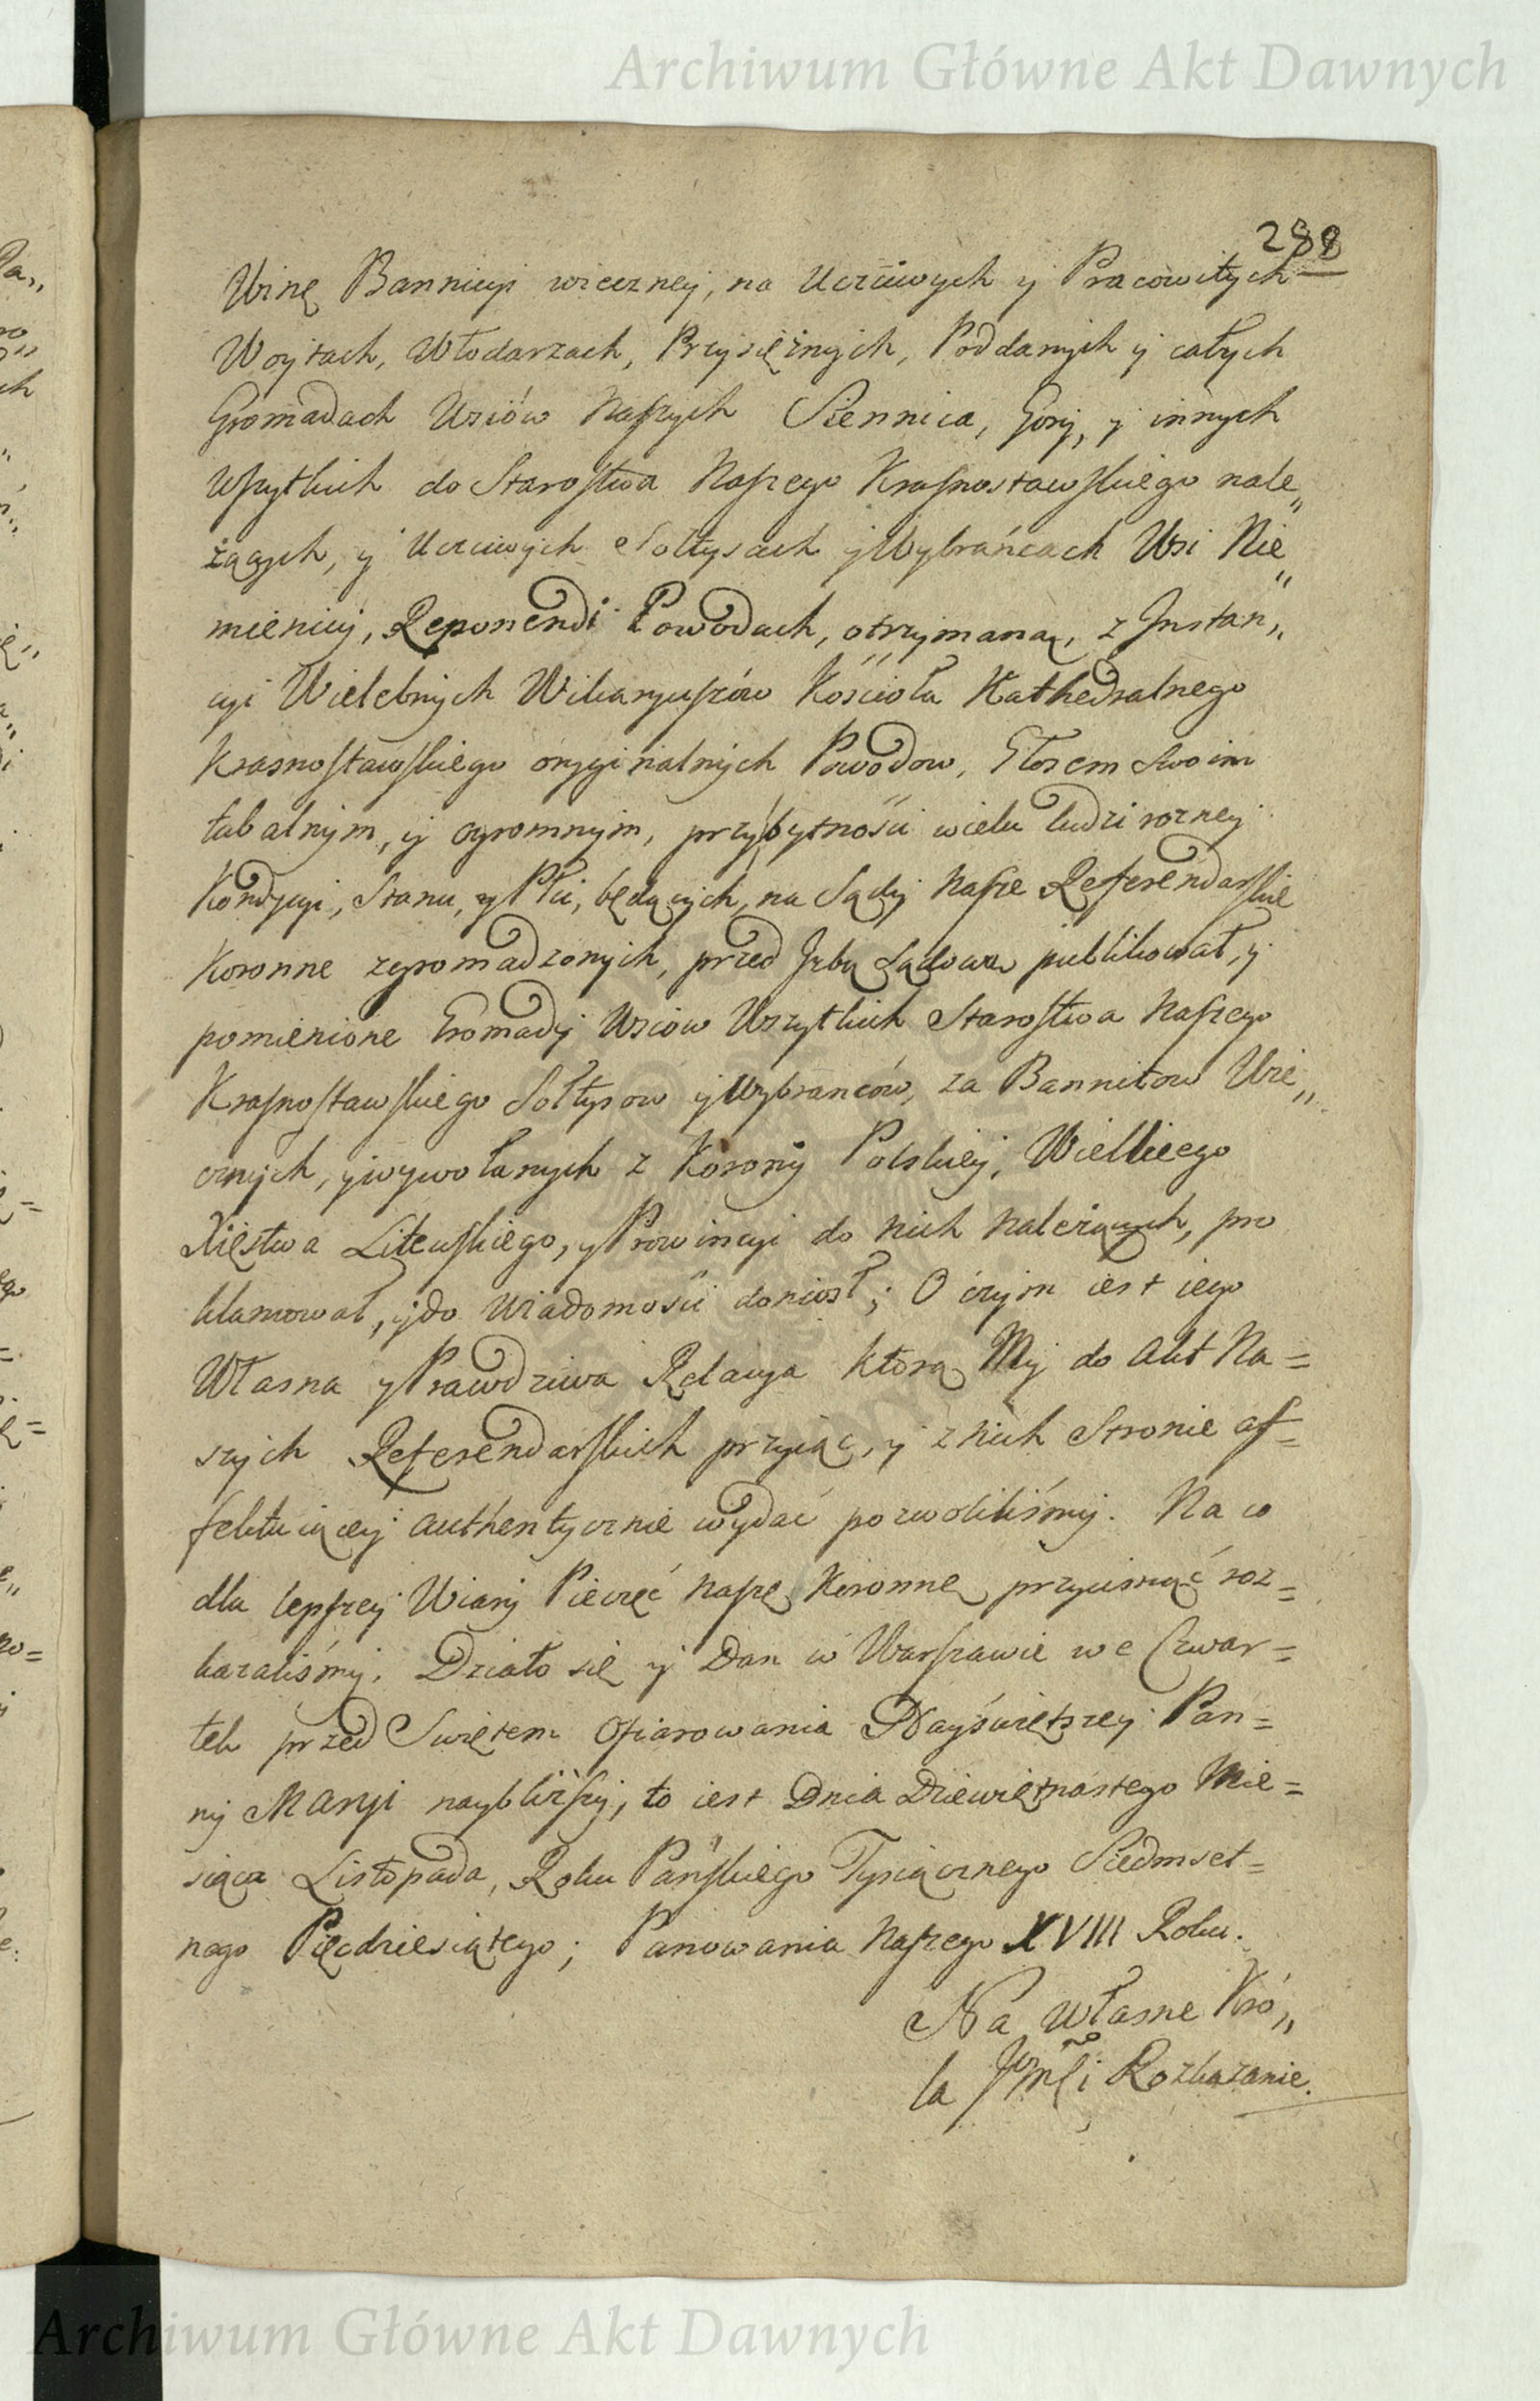 Archiwum Główne Akt Dawnych
288
Winę Bannicyi wieczney, na Uczciwych y Pracowitych
Woytach, Włodarzach, Przysiężnych, Poddanych y całych
Gromadach Wsiów Naszych Siennica, Gory, y innych
Wszytkich do Starostwa Naszego Krasnostawskiego nale„
żących, y Uczciwych Sołtysach y Wybrańcach Wsi Nie„
mienicy, Reponendi Powodach, otrzymaną, z Instan„
cyi Wielebnych Wikaryuszów Kościoła Kathedralnego
Krasnostawskiego oryginalnych Powodow, Głosem Swoim
tubalnym, y ogromnym, przy bytności wielu ludzi rozney
Kondycyi, Stanu, y Płci, będących, na Sądy Nasze Referendarskie
Koronne zgromadzonych, przed Izbą Sądową publikował, y
pomienione Gromady Wsiow Wszytkich Starostwa Naszego
Krasnostawskiego Sołtysow y Wybranców, za Bannitow Wie„
cznych, y wywołanych z Korony Polskiey, Wielkiego
Xięstwa Litewskiego, y Prowincyi do nich należących, pro
klamował, y do wiadomości doniosł; O czym iest iego
Własna y Prawdziwa Relacya którą My do Akt Na=
szych Referendarskich przyiąć, y z nich Stronie af=
fektuiącey authentycznie wydać pozwoliliśmy. Na co
dla lepszey Wiary Pieczęć Naszę Koronną przycisnąć roz=
kazaliśmy. Działo się y Dan w Warszawie we Czwar=
tek przed Swiętem Ofiarowania Nayświętszey Pan=
ny Maryi naybliższy, to iest Dnia Dziewiętnastego Mie=
siąca Listopada, Roku Pańskiego Tysiącznego Siedmset=
nego Pięcdziesiątego; Panowania Naszego XVIII Roku.
Na własne Kró„
la Jmści Rozkazanie.
Archiwum Główne Akt Dawnych